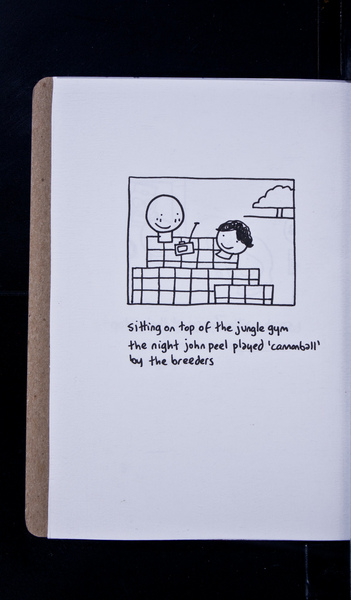 sitting on top of the jungle gym
the night john peel played 'cannonball'
by the breeders